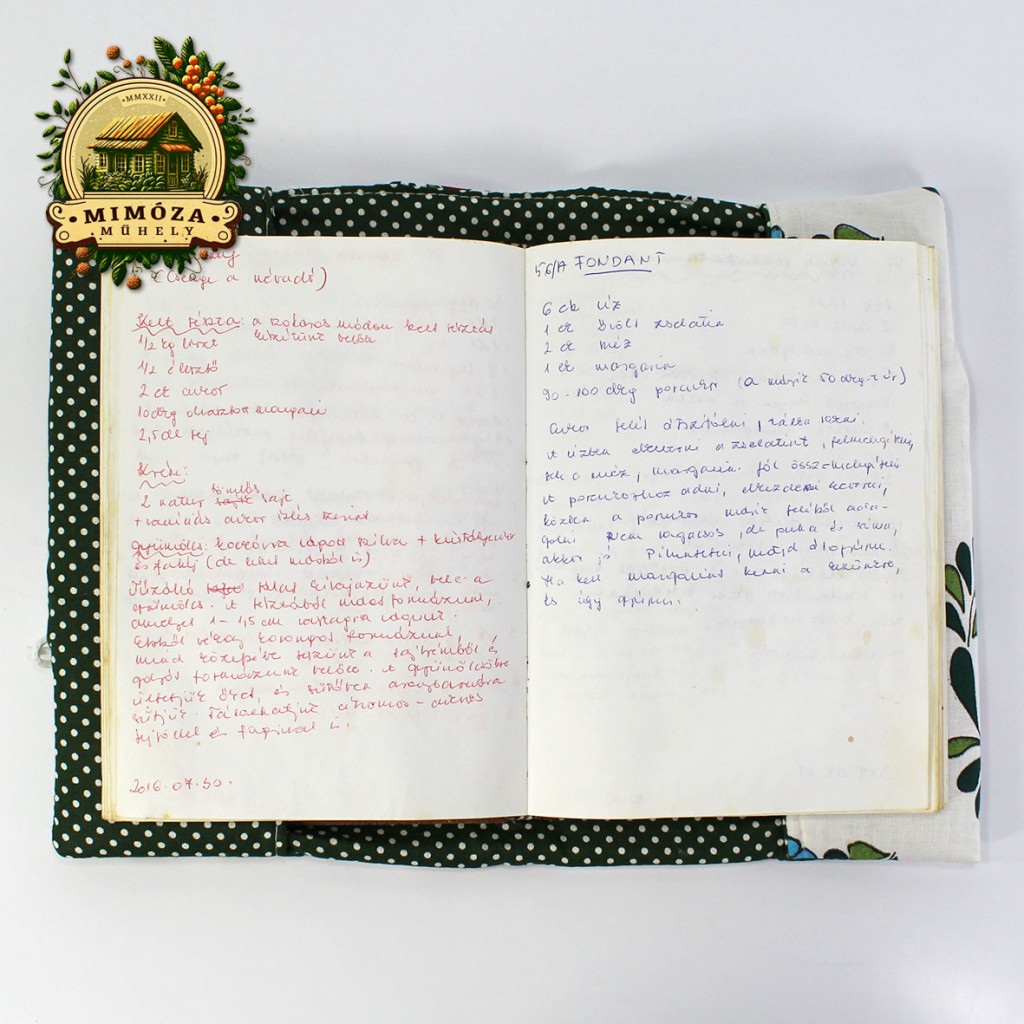 MMXXII
MIMÓZA
MŰHELY
(Csenge a névadó)
Kelt tészta: a szokásos módon kelt tésztát
készítünk belőle
1/2 kg liszt
1/2 élesztő
2 ek cukor
10 dkg olvasztott margarin
2,5 dl tej
Krém:
2 natúr tömlős sajt
+ vaníliás cukor ízlés szerint
Gyümölcs: kockára vágott szilva +
és fahéj (de lehet másból is)
Tűzálló tálat kivajazunk, bele a
gyümölcs. A tésztából rudat formázunk,
amelyet 1 - 1,5 cm vastagra vágunk.
Ebből végig korongot formázunk,
majd közepébe teszünk a sajtkrémből és
golyót formázunk belőle. A gyümölcsökre
ültetjük őket, és sütőben aranybarnára
sütjük. Tálalhatjuk citromos -
tejföllel és fagyival is.
2016.07.30.
56/A FONDANT
6 ek víz
1 ek zselatin
2 ek méz
1 ek margarin
90 - 100 dkg porcukor (a másik 50 dkg-os)
cukor felét átszitálni, tálba tenni.
A vízben elkeverni a zselatint, felmelegíteni,
bele a méz, margarin. Jól összemelegíteni
A porcukorhoz adni, elkezdeni keverni,
közben a porcukor másik feléből ada-
golni. Nem ragacsos, de puha és sima,
akkor jó. Pihentetni, majd átgyúrni.
Ha kell margarint kenni a kezünkre,
és úgy gyúrni.